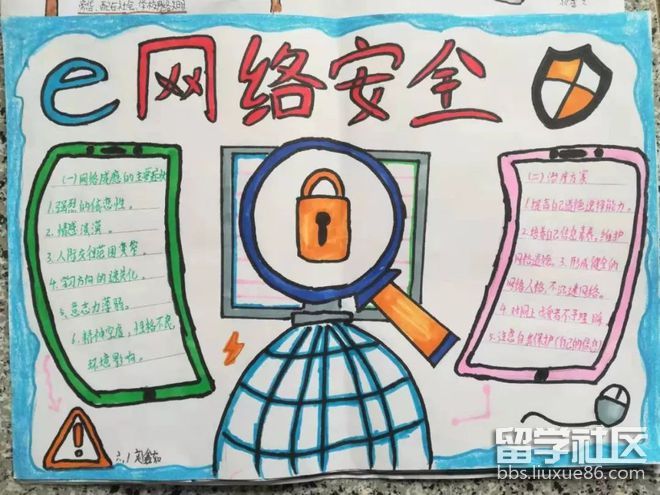 旁岱、配合社会、学校
e网络安全
(一)网络成瘾的主要症状
1.强烈的依恋性。
2.情感淡漠。
3.人际交往范围狭窄。
4.学习方向的迷失化。
5.意志力薄弱。
6.精神空虚,性格不良
环境影响。
(二)治疗方案
1.提高自己道德选择能力。
2.培养自己信息素养,维护
网络道德。3.形成健全的
网络人格,不沉迷网络。
4.对网上
5.注意自我保护(自己的信息)
六.1
留学社区
bbs.liuxue86.com